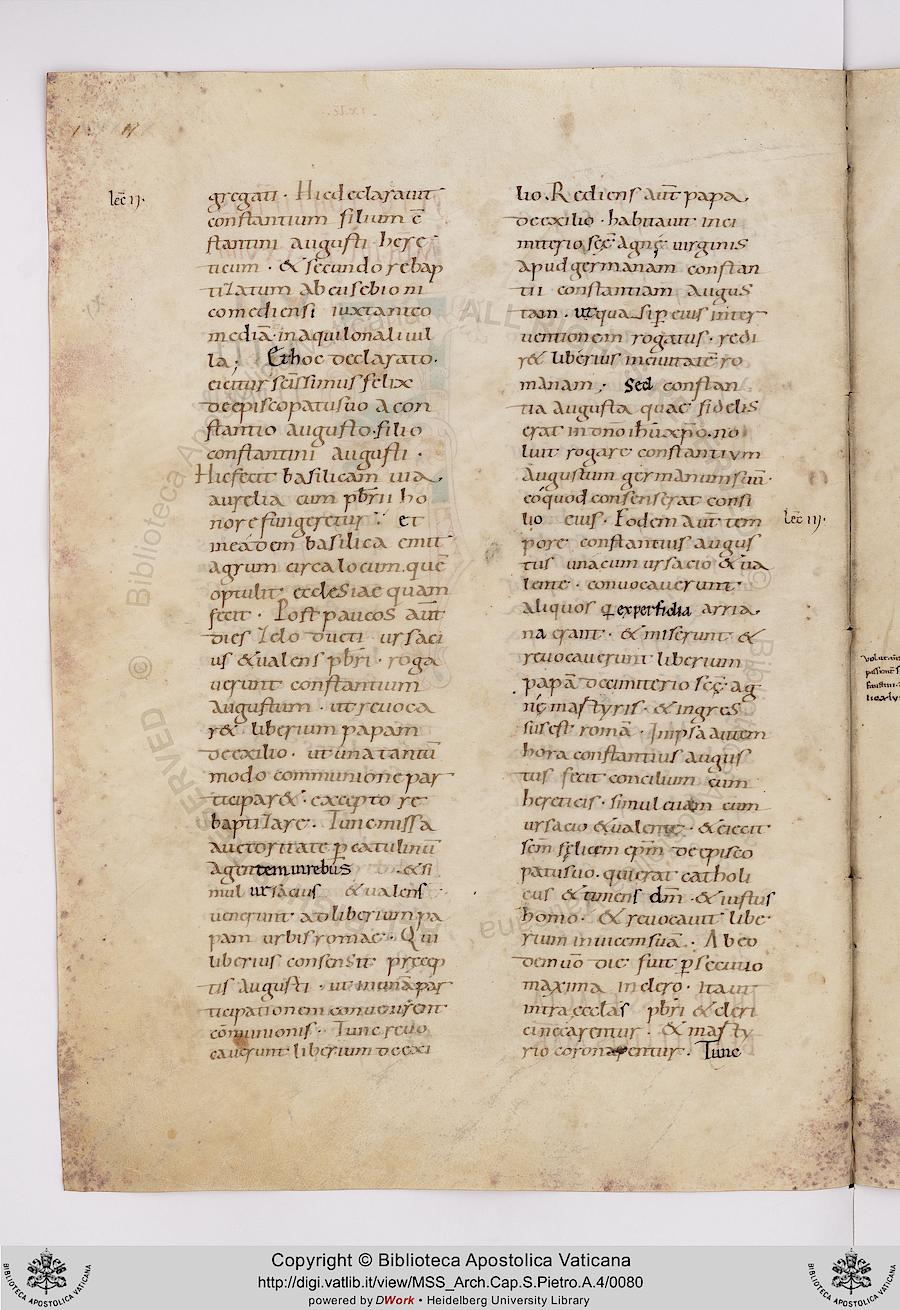 lec̄ ıȷ.
gregati · Hicdeclarauit
constantium filium c̄
stantini augusti here
ticum · & secundo rebap
tizatum abeusebio ni
comediensi iuxtanico
mediā inaquilonali uil
la; Et hoc declarato.
eicitur sc̄issimus felix
deepiscopatu suo a con
stantio augusto · filio
constantini augusti ·
Hic fecit basilicam uia
aurelia cum pb̄rii ho
nore fungeretur · et
ineadem basilica emit
agrum circa locum · quē
optulit ecclesiae quam
fecit · Post paucos aut̄
dies zelo ducti ursaci
us & ualens pb̄ri · roga
uerunt constantium
augustum · ut reuoca
r& liberium papam
deexilio · ut una tantū
modo communione par
ticipar& · excepto re
baptizare · Tunc missa
auctoritate p̲ catulinū
agentem inrebus · & si
mul ursacius & ualens ·
uenerunt adliberium pa
pam urbis romae · Qui
liberius consensit precep
tis augusti · ut inunā par
ticipationem conuenirent
cōmunionis · Tunc reuo
cauerunt liberium deexi
lio. Rediens aut̄ papa
deexilio · habitauit inci
miterio sc̄ę agnę uirginis
apud germanam constan
tii constantiam augus
tam · ut quasi p̲ eius inter
uentionem rogatus · redi
r& liberius inciuitatē ro
manam; Sed constan
tia augusta quae fidelis
erat in dn̄o ih̄u xp̄o · no
luit rogare constantium
augustum germanum suū ·
eo quod consenserat consi
lio eius · Eodem aut̄ tem
lec̄ ııȷ.
pore constantius augus
tus una cum ursacio & ua
lente · conuocauerunt
aliquos q ex perfidia arria
na erant · & miserunt &
reuocauerunt liberium
papā decimiterio sc̄ę ag
nę martyris · & ingres
sus est romā · In ipsa autem
hora constantius augus
tus fecit concilium cum
hereticis · simul etiam cum
ursacio & ualente · & eiecit
sc̄m felicem ep̄m deepisco
patu suo · qui erat catholi
cus & timens dm̄ · & iustus
homo · & reuocauit libe
rium inuicem suā · Ab eo
dem uo die fuit p̲secutio
maxima in clero · Ita ut
intra ecclas pb̄ri & cleri
ci necarentur · & marty
rio coronarentur · Tunc
Copyright © Biblioteca Apostolica Vaticana
http://digi.vatlib.it/view/MSS_Arch.Cap.S.Pietro.A.4/0080
powered by DWork • Heidelberg University Library
BIBLIOTECA APOSTOLICA VATICANA
BIBLIOTECA APOSTOLICA VATICANA